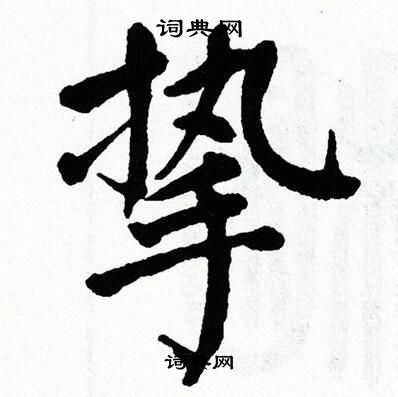 词典网
挚
词典网